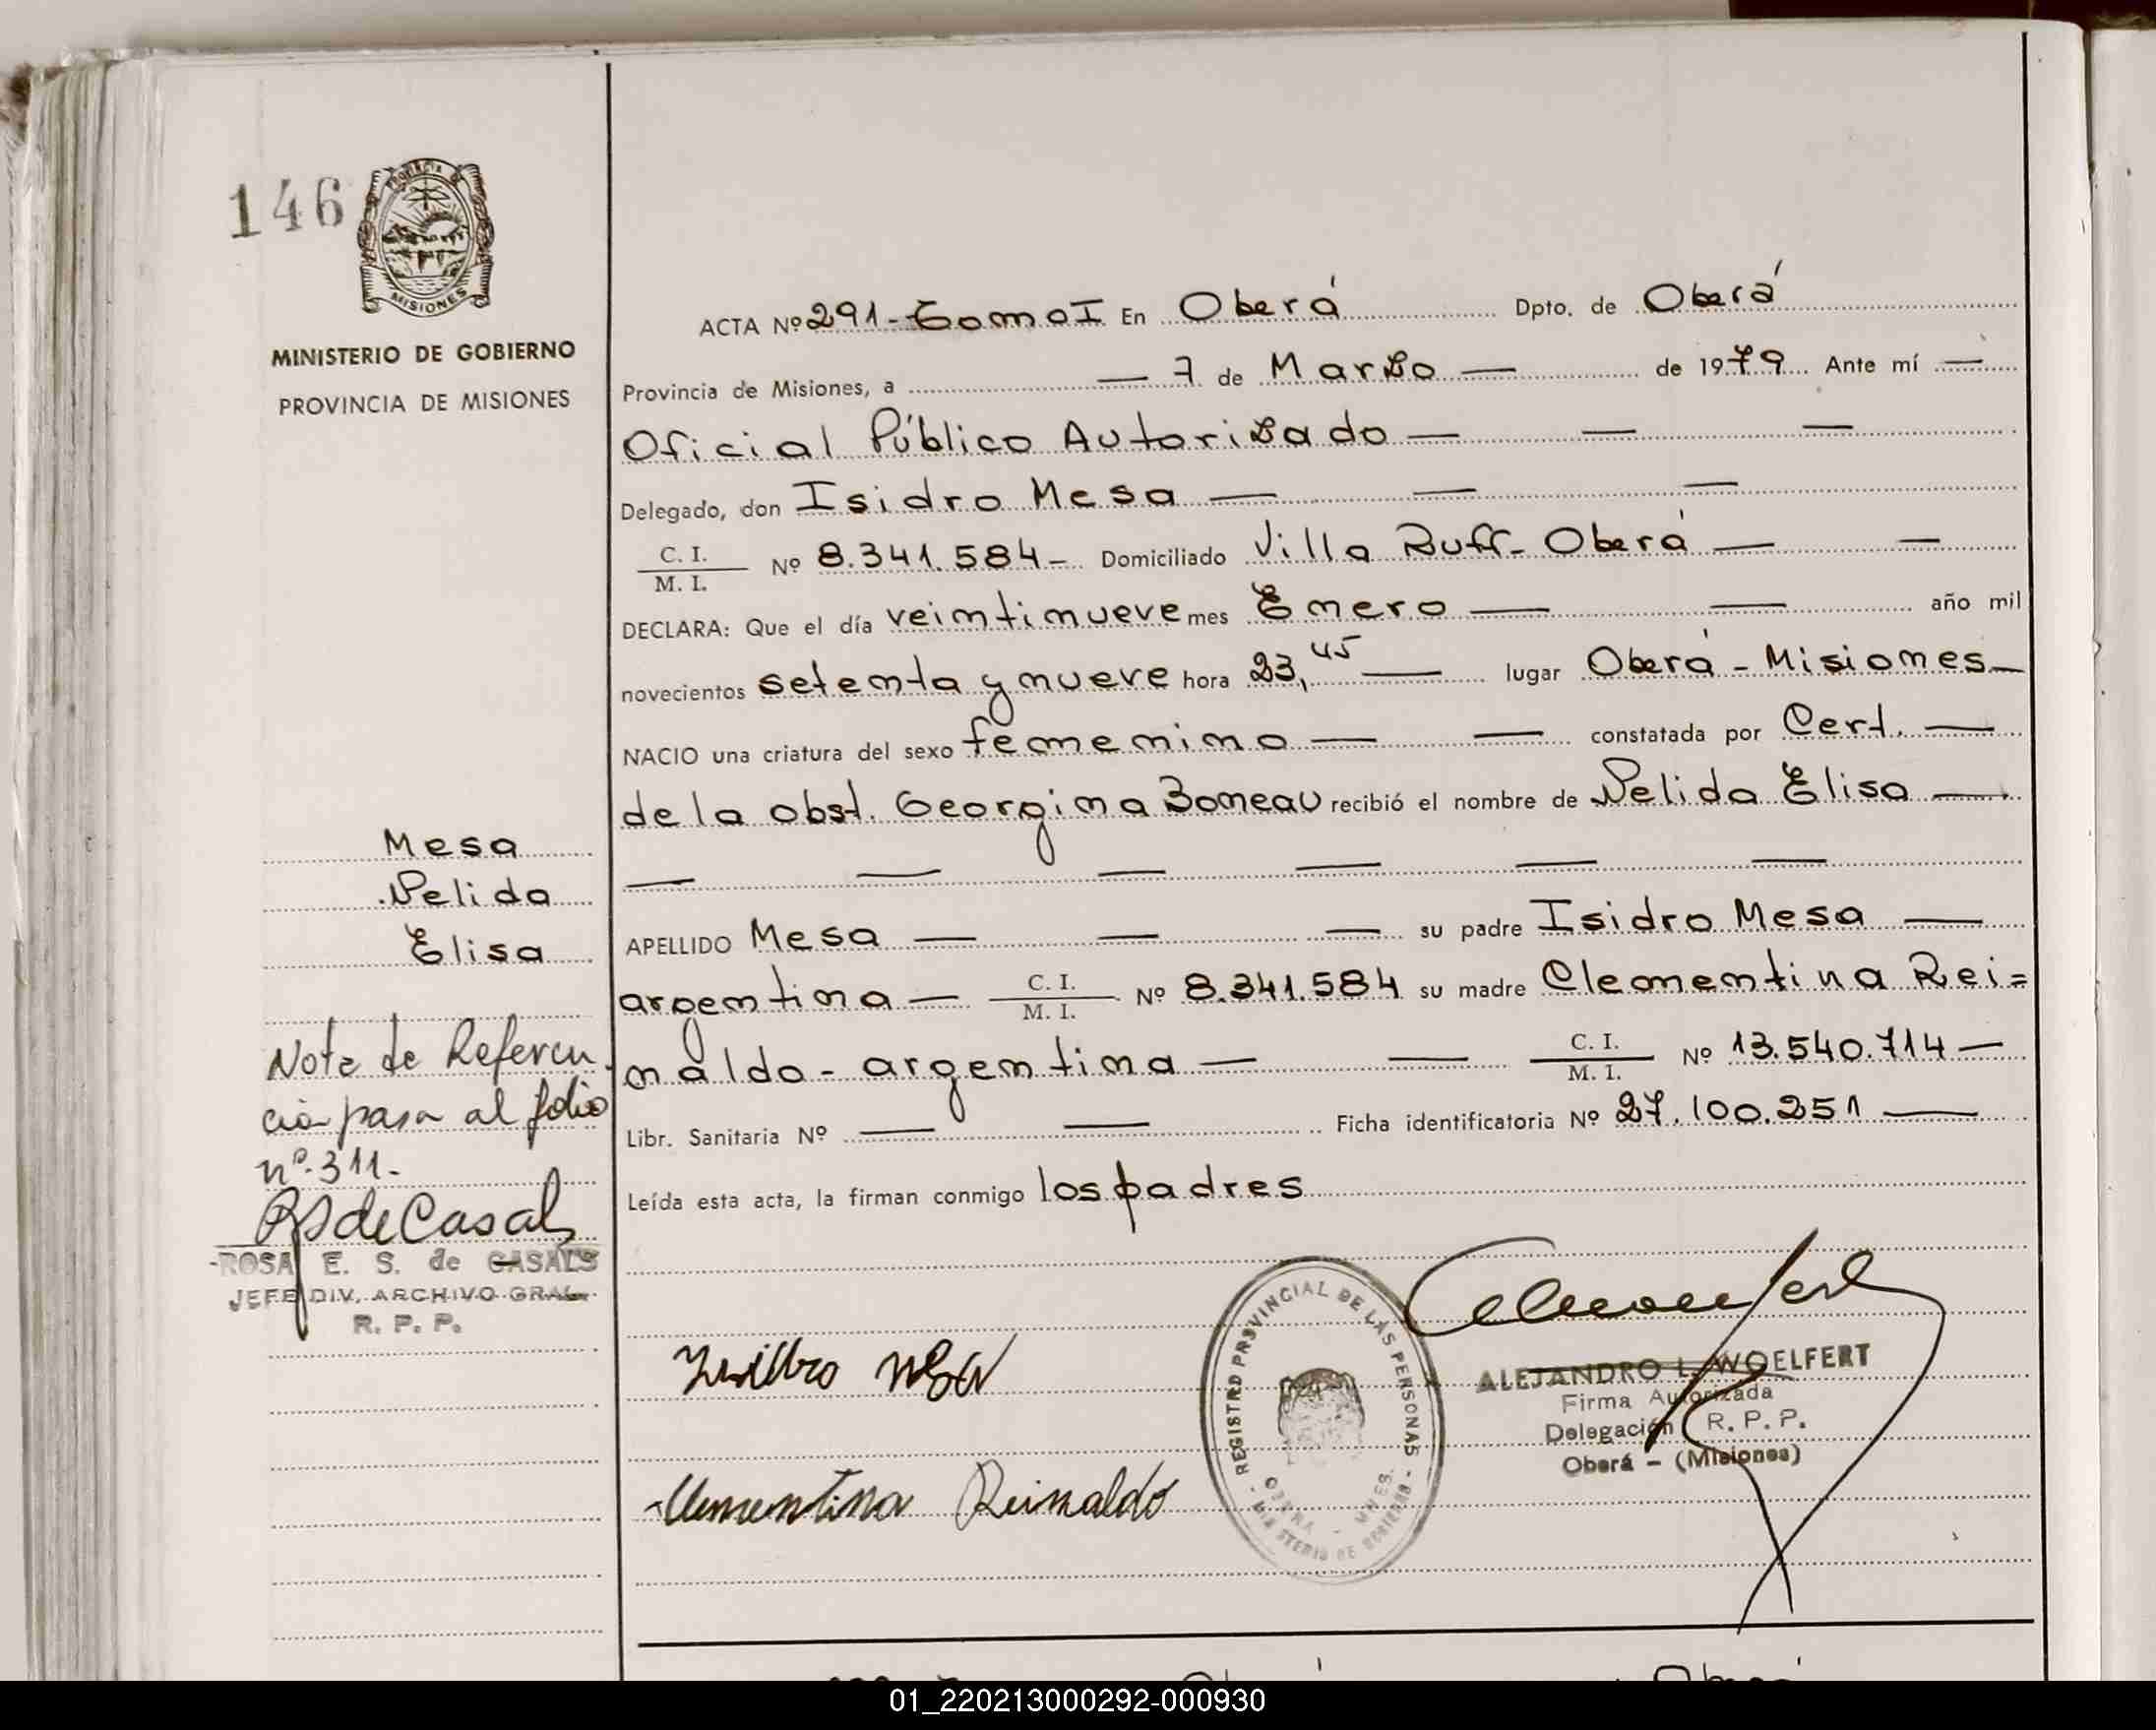 146
PROVINCIA DE
MISIONES
MINISTERIO DE GOBIERNO
PROVINCIA DE MISIONES
ACTA Nº 291 - Tomo I En Oberá Dpto. de Oberá
Provincia de Misiones, a — 7 de Marzo — de 1979 Ante mí —
Oficial Público Autorizado — — —
Delegado, don Isidro Mesa — — —
C. I.
M. I. Nº 8.341.584 - Domiciliado Villa Ruff - Oberá — —
DECLARA: Que el día veintinueve mes Enero — — año mil
novecientos setenta y nueve hora 23,45 — lugar Oberá - Misiones —
NACIO una criatura del sexo femenino — — constatada por Cert. —
de la obst. Georgina Boneau recibió el nombre de Nelida Elisa —
— — — — — —
APELLIDO Mesa — — — su padre Isidro Mesa —
argentina — C. I.
M. I. Nº 8.341.584 su madre Clementina Rei=
naldo - argentina — — C. I.
M. I. Nº 13.540.714 —
Libr. Sanitaria Nº — — Ficha identificatoria Nº 27.100.251 —
Leída esta acta, la firman conmigo los padres
Mesa
Nelida
Elisa
Nota de Referen
cia pasa al folio
nº 311.-
RS de Casals
ROSA E. S. de CASALS
JEFE DIV. ARCHIVO GRAL.
R. P. P.
Isidro Mesa
Clementina Reinaldo
REGISTRO PROVINCIAL DE LAS PERSONAS
OBERA - MNES.
MINISTERIO DE GOBIERNO
ALEJANDRO L. WOELFERT
Firma Autorizada
Delegación R. P. P.
Oberá - (Misiones)
01_220213000292-000930